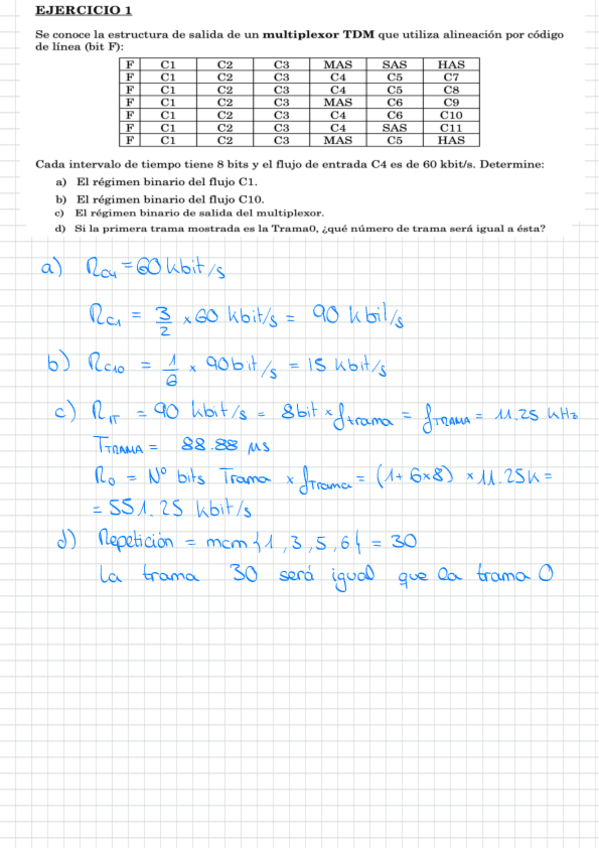 EJERCICIO 1
Se conoce la estructura de salida de un multiplexor TDM que utiliza alineación por código
de línea (bit F):
F C1 C2 C3 MAS SAS HAS
F C1 C2 C3 C4 C5 C7
F C1 C2 C3 C4 C5 C8
F C1 C2 C3 MAS C6 C9
F C1 C2 C3 C4 C6 C10
F C1 C2 C3 C4 SAS C11
F C1 C2 C3 MAS C5 HAS
Cada intervalo de tiempo tiene 8 bits y el flujo de entrada C4 es de 60 kbit/s. Determine:
a) El régimen binario del flujo C1.
b) El régimen binario del flujo C10.
c) El régimen binario de salida del multiplexor.
d) Si la primera trama mostrada es la Trama0, ¿qué número de trama será igual a ésta?
a) RC4 = 60 kbit/s
RC1 = 3/2 × 60 kbit/s = 90 kbit/s
b) RC10 = 1/6 × 90bit/s = 15 kbit/s
c) RIT = 90 kbit/s = 8bit × ftrama = fTRAMA = 11.25 kHz
TTRAMA = 88.88 µs
R0 = Nº bits Trama × fTrama = (1+6×8) × 11.25K =
= 551.25 kbit/s
d) Repetición = mcm {1, 3, 5, 6{ = 30
La trama 30 será igual que la trama 0